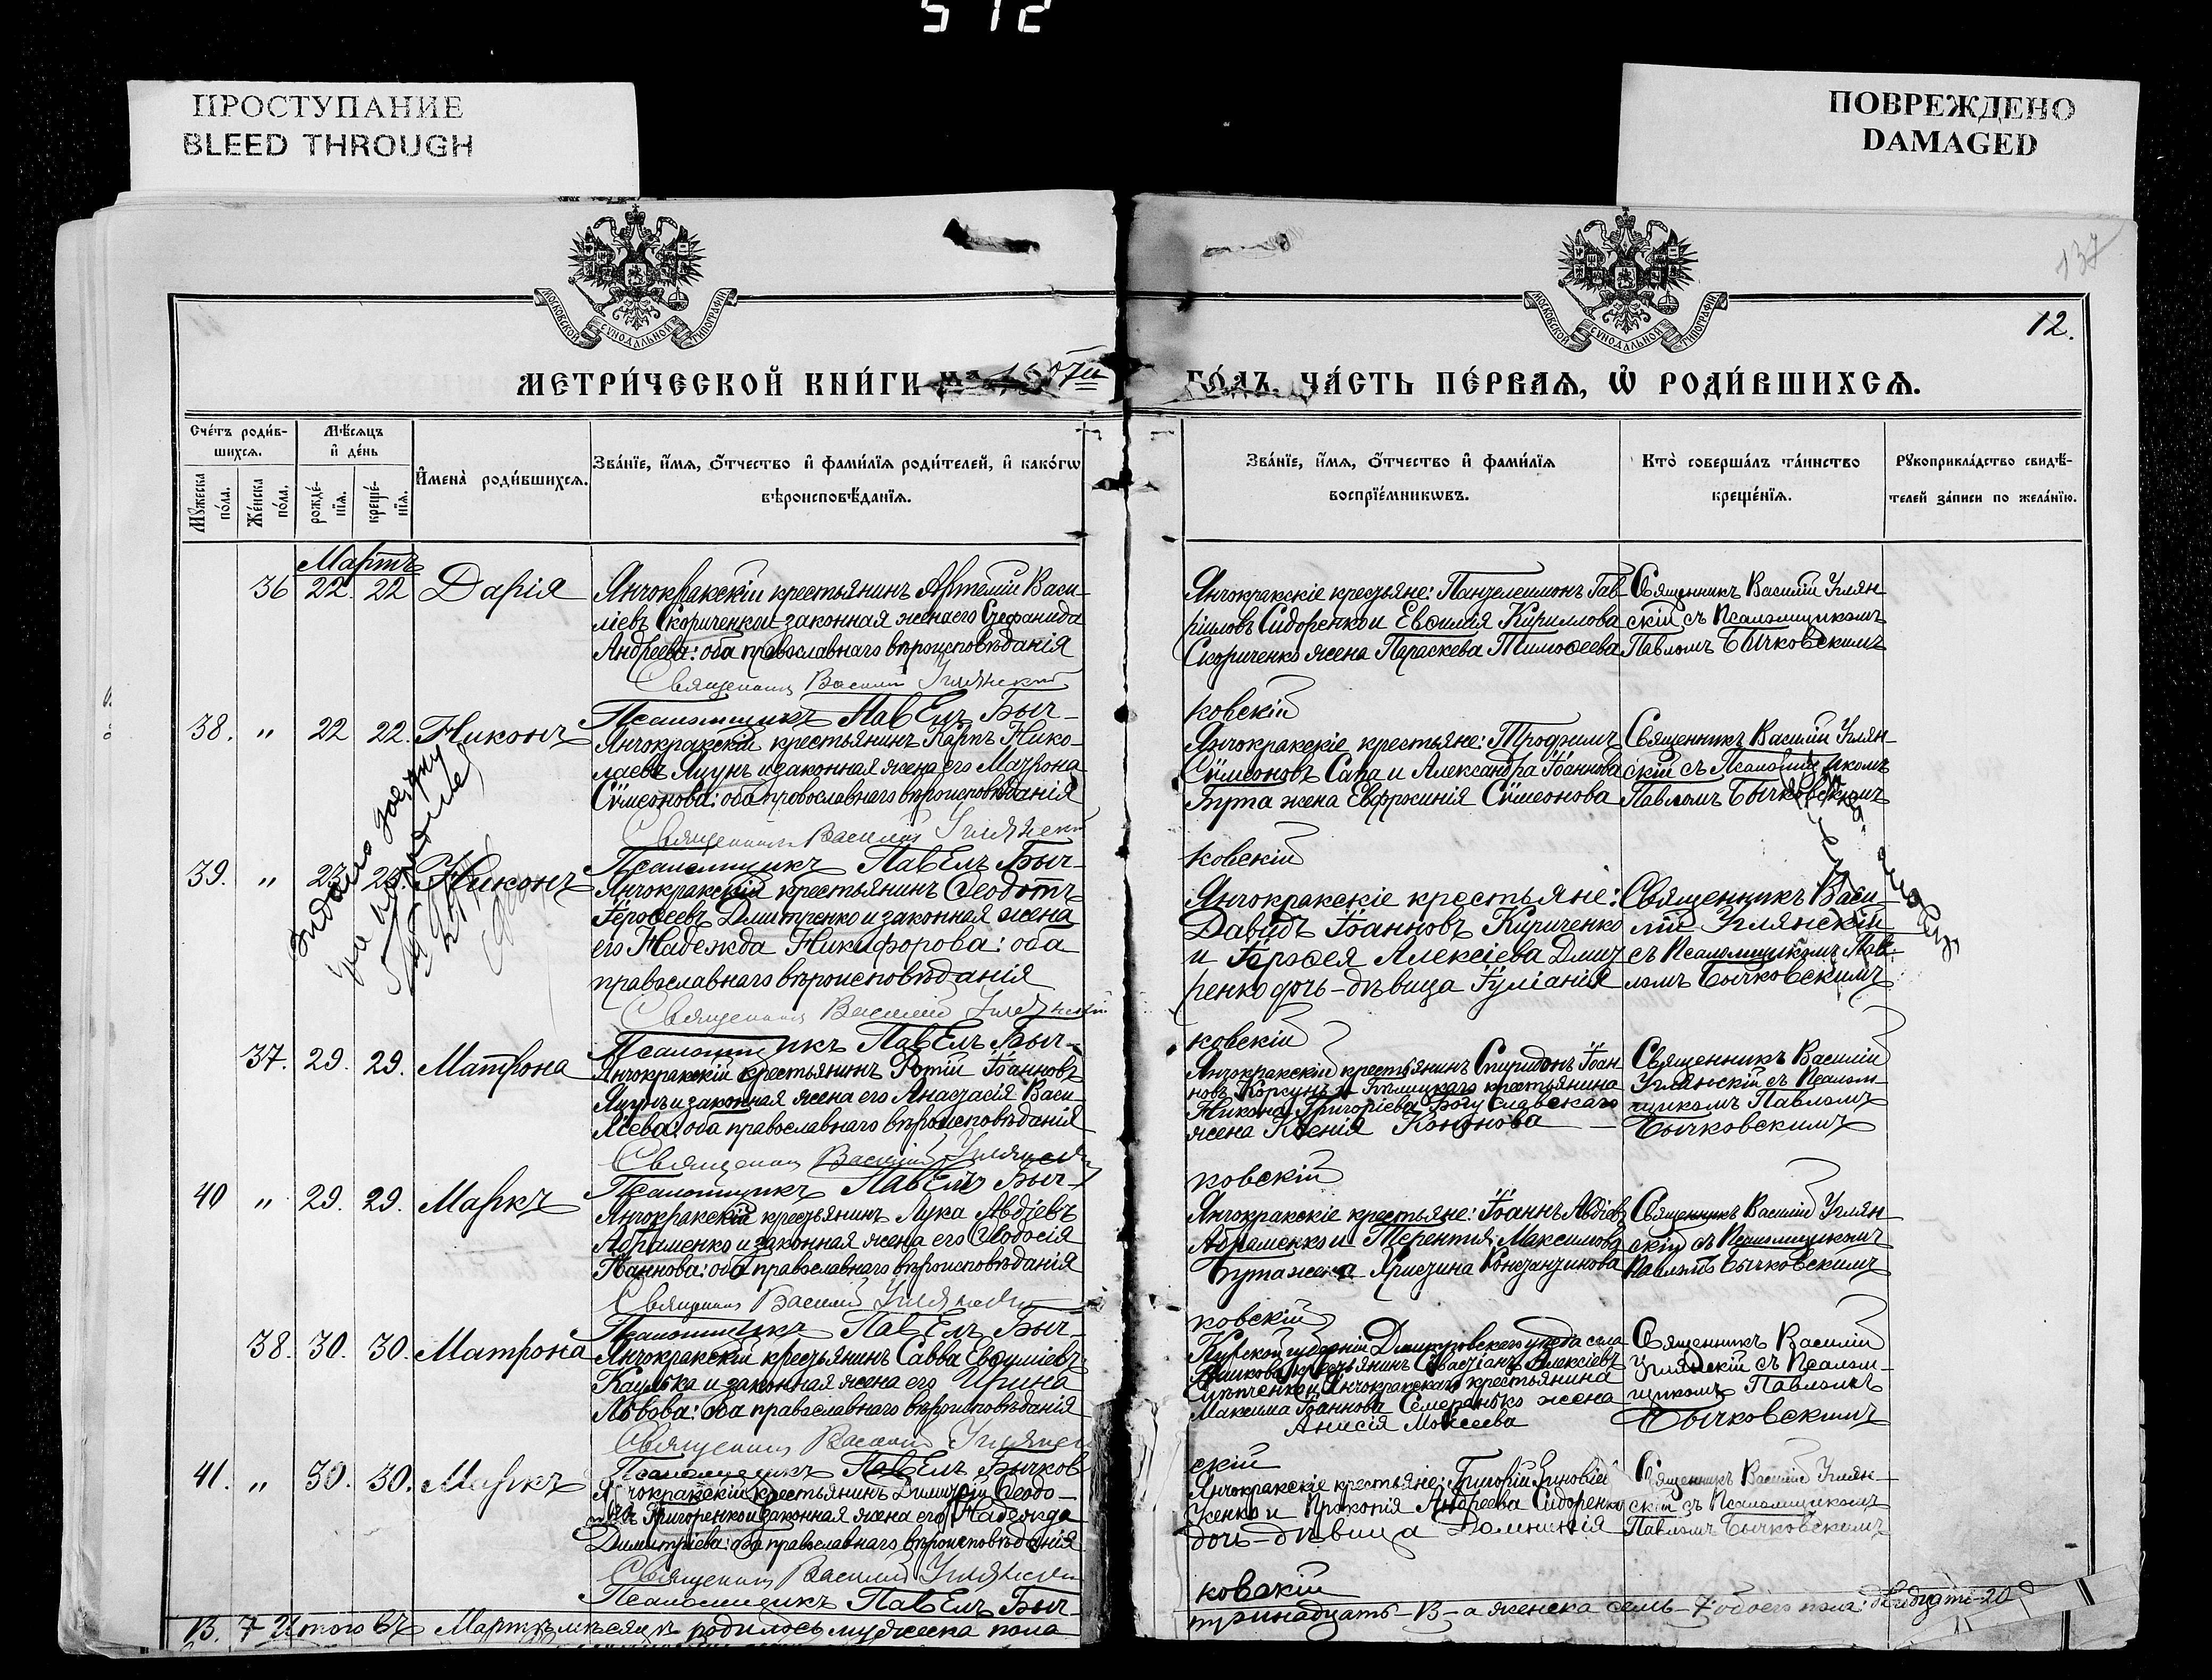 512
ПРОСТУПАНИЕ
BLEED THROUGH
ПОВРЕЖДЕНО
DAMAGED
137
12.
МОСКОВСКОЙ СѴНОДАЛЬНОЙ ТИПОГРАФІИ
МОСКОВСКОЙ СѴНОДАЛЬНОЙ ТИПОГРАФІИ
МЕТРИ́ЧЕСКОЙ КНИ́ГИ на ГО́ДЪ, ЧА́СТЬ ПЕ́РВАЯ, Ѿ РОДИ́ВШИХСЯ.
Сче́тъ роди́вшихся.
Мѣ́сяцъ и҆ де́нь
Мꙋ́жеска по́ла.
Же́нска по́ла.
рожде́нїя.
креще́нїя.
И҆мена̀ роди́вшихся.
Зва́нїе, и҆́мя, ѻ҆́тчество и҆ фами́лїя роди́телей, и҆ како́гѡ
вѣроисповѣ́данїя.
Зва́нїе, и҆́мя, ѻ҆́тчество и҆ фами́лїя
воспрїе́мникѡвъ.
Кто̀ соверша́лъ та́инство
креще́нїя.
Рꙋкоприкла́дство свидѣ́-
телей за́писи по жела́нїю.
Мартъ
36 22 22 Дарія
Янчокракскій крестьянинъ Артемій Васи-
ліевъ Скориченко и законная жена его Стефанида
Андреева: оба православнаго вѣроисповѣданія
Священникъ Василій Углянскій
Псаломщикъ Павелъ Быч-
ковскій
Янчокракскіе крестьяне: Пантелеимонъ Гав-
ріиловъ Сидоренко и Евѳимія Кириллова
Скориченко жена Параскева Тимоѳеева
Священникъ Василій Углян-
скій съ Псаломщикомъ
Павломъ Бычковскимъ
38. " 22 22. Никонъ
Янчокракскій крестьянинъ Карпъ Нико-
лаевъ Яцунъ и законная жена его Матрона
Сѵмеонова: оба православнаго вѣроисповѣданія
Священникъ Василій Углянскій
Псаломщикъ Павелъ Быч-
ковскій
Янчокракскіе крестьяне: Трофимъ
Сѵмеоновъ Сапа и Александра Іоаннова
Бута жена Евфросинія Сѵмеонова
Священникъ Василій Углян-
скій съ Псаломщикомъ
Павломъ Бычковскимъ
39. " 23. 23. Никонъ
Янчокракскій крестьянинъ Ѳеодотъ
Іероѳеевъ Дмитренко и законная жена
его Надежда Никифорова: оба
православнаго вѣроисповѣданія
Священникъ Василій Углянскій
Псаломщикъ Павелъ Быч-
ковскій
Янчокракскіе крестьяне:
Давидъ Іоанновъ Кириченко
и Іероѳея Алексіева Дмит-
ренко дочь-дѣвица Іуліанія
Священникъ Васи-
лій Углянскій
съ Псаломщикомъ Пав-
ломъ Бычковскимъ
37. 29. 29. Матрона
Янчокракскій крестьянинъ Фотій Іоанновъ
Яцунъ и законная жена его Анастасія Васи-
ліева: оба православнаго вѣроисповѣданія
Священникъ Василій Углянскій
Псаломщикъ Павелъ Быч-
ковскій
Янчокракскій крестьянинъ Спиридонъ Іоан-
новъ Корсунъ и крестьянина
Никона Григоріева Богуславскаго
жена Ксенія Кононова
Священникъ Василій
Углянскій съ Псалом-
щикомъ Павломъ
Бычковскимъ
40 " 29. 29. Маркъ
Янчокракскій крестьянинъ Лука Авдіевъ
Абраменко и законная жена его Ѳеодосія
Іоаннова: оба православнаго вѣроисповѣданія
Священникъ Василій Углянскій
Псаломщикъ Павелъ Быч-
ковскій
Янчокракскіе крестьяне: Іоаннъ Авдіевъ
Абраменко и Терентія Максимова
Бута жена Христина Константинова
Священникъ Василій Углян-
скій съ Псаломщикомъ
Павломъ Бычковскимъ
38. 30. 30. Матрона
Янчокракскій крестьянинъ Савва Евѳиміевъ
и законная жена его Ирина
Львова: оба православнаго вѣроисповѣданія
Священникъ Василій Углянскій
Псаломщикъ Павелъ Бычков-
скій
Курской губерніи Дмитровскаго уѣзда села
крестьянинъ Севастіанъ Алексіевъ
и Янчокракскаго крестьянина
Максима Іоаннова Семеренько жена
Анисія Моисеева
Священникъ Василій
Углянскій съ Псалом-
щикомъ Павломъ
Бычковскимъ
41. " 30. 30. Маркъ
Янчокракскій крестьянинъ Димитрій Ѳеодо-
Григоренко и законная жена его Надежда
Димитріева: оба православнаго вѣроисповѣданія
Священникъ Василій Углянскій
Псаломщикъ Павелъ Быч-
ковскій
Янчокракскіе крестьяне: Григорій
и Прокопія Андреева Сидоренко
дочь-дѣвица Домникія
Священникъ Василій Углян-
скій съ Псаломщикомъ
Павломъ Бычковскимъ
13. 7 Итого въ Мартѣ мѣсяцѣ родилось мужеска пола
тринадцать-13-а женска семь-7-обоего пола двадцать-20